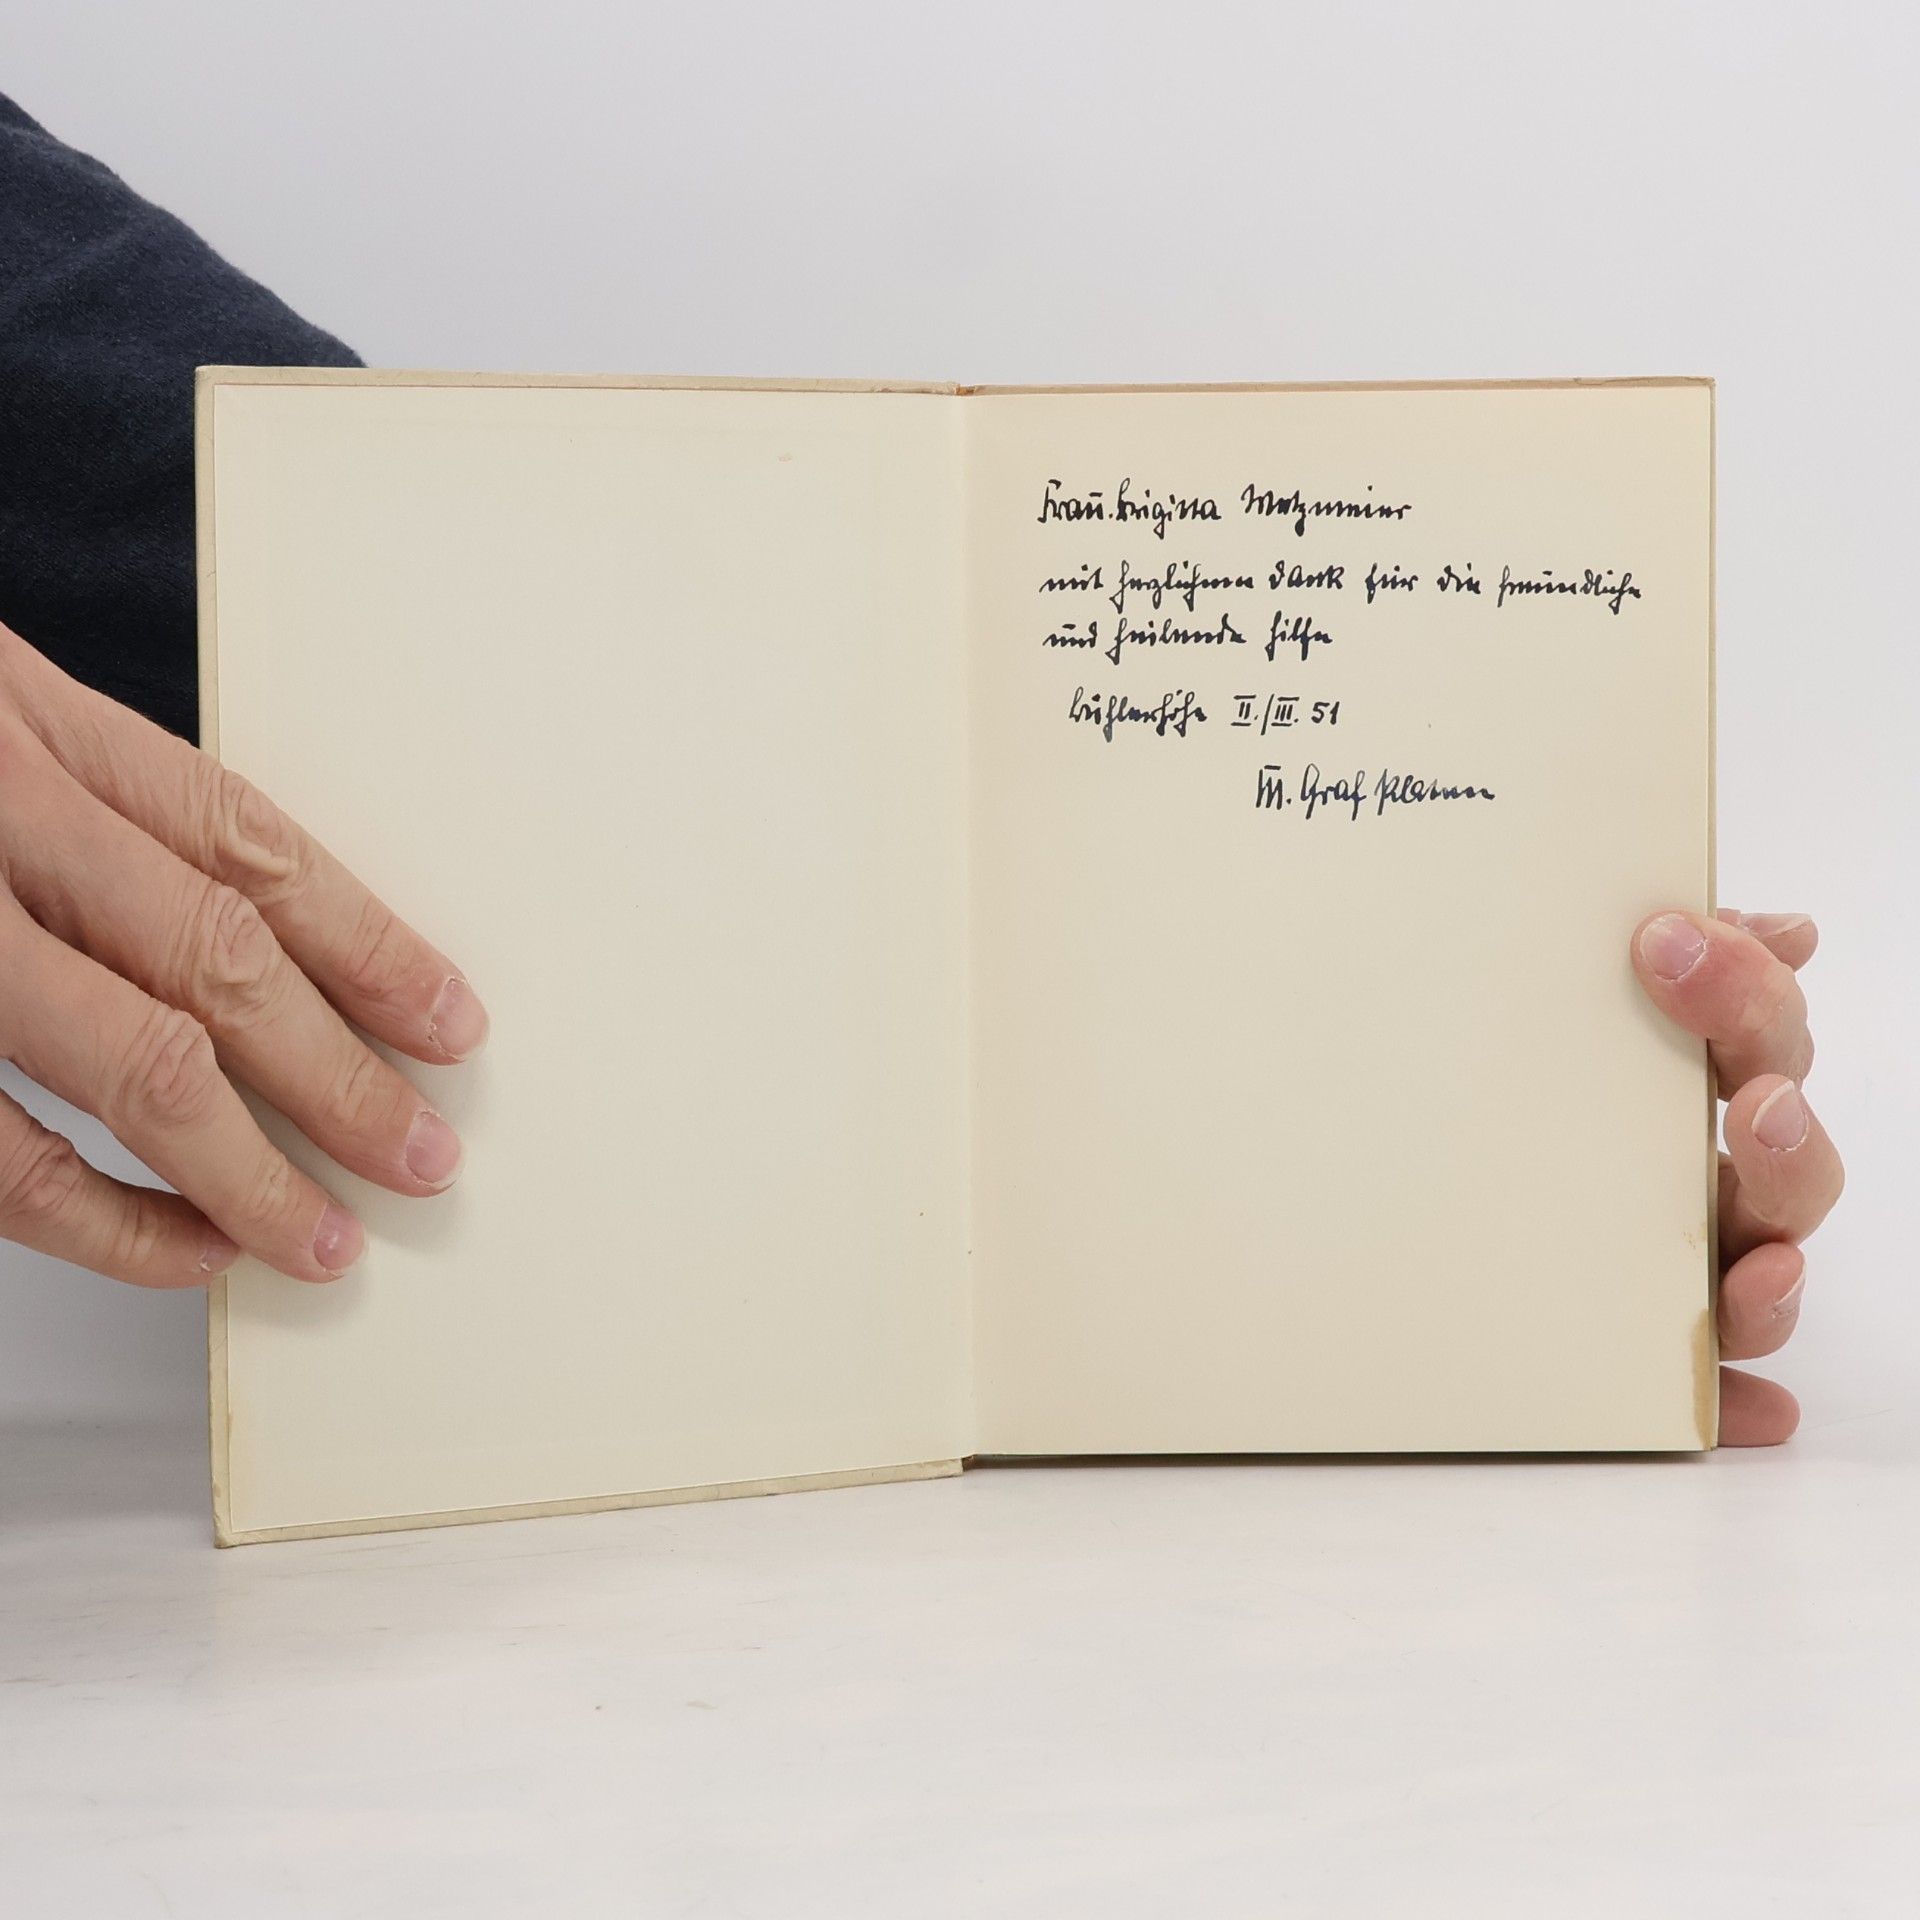 Frau Brigitta Metzmeier
mit herzlichem Dank für die freundliche
und heilende Hilfe
Bühlerhöhe II./III. 51
M. Graf Platen